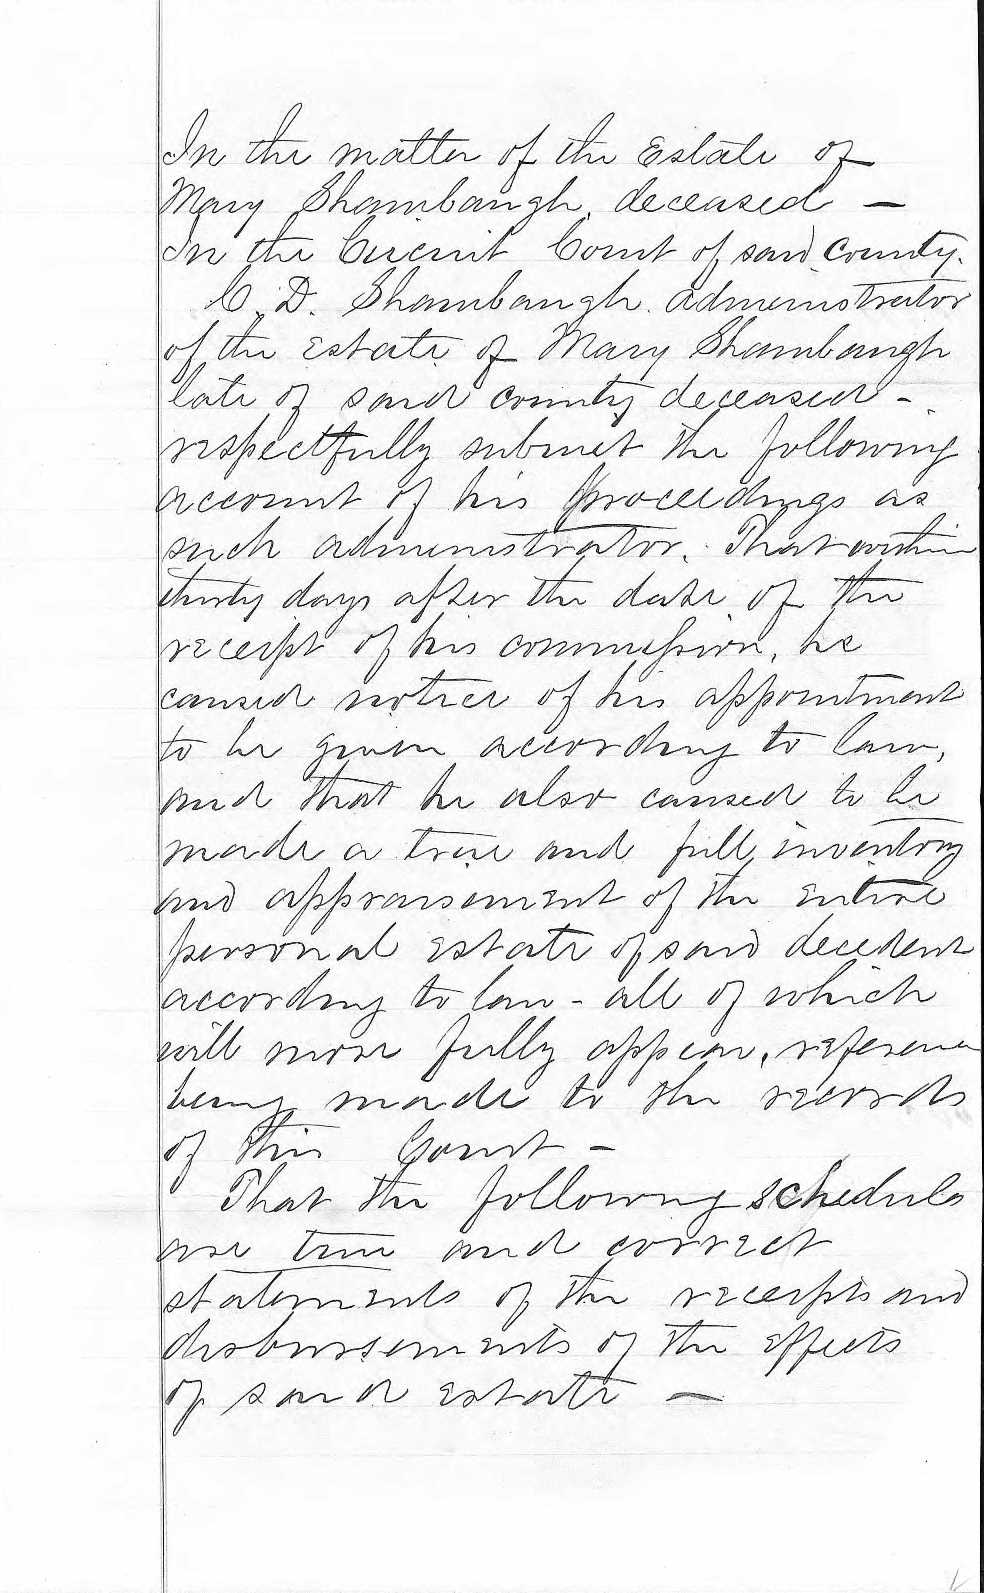 In the matter of the Estate of
Mary Shambaugh, deceased —
In the Circuit Court of said county.
C. D. Shambaugh. administrator
of the Estate of Mary Shambaugh
late of said county deceased -
respectfully submit the following
account of his proceedings as
such administrator. That within
thirty days after the date of the
receipt of his commission, he
caused notice of his appointment
to be given according to law,
and that he also caused to be
made a true and full inventory
and appraisement of the entire
personal estate of said decedent
according to law - all of which
will more fully appear, reference
being made to the records
of this Court —
That the following schedules
are true and correct
statements of the receipts and
disbursements of the effects
of said estate —